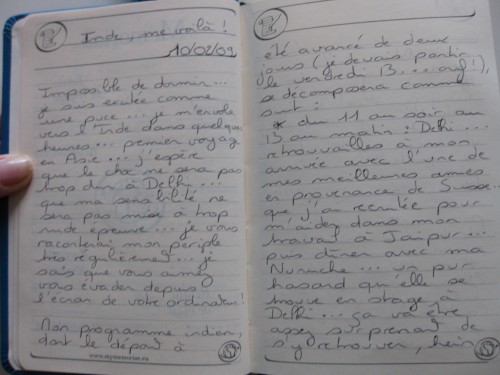 Inde, me voilà !
10/02/09
Impossible de dormir...
je suis excitée comme
une puce... je m'envole
vers l'Inde dans quelques
heures... premier voyage
en Asie... j'espère
que le choc ne sera pas
trop dur à Delhi...
que ma sensibilité ne
sera pas mise à trop
rude épreuve... je vous
raconterai mon périple
très régulièrement... je
sais que vous aimez
vous évader depuis
l'écran de votre ordinateur !
Mon programme indien,
dont le départ a
www.mymemories.eu
été avancé de deux
jours (je devais partir
le vendredi 13... ouf !),
se décomposera comme
suit :
* du 11 au soir au
13 au matin : Delhi...
retrouvailles à mon
arrivée avec l'une de
mes meilleures amies
en provenance de Suisse...
que j'ai recrutée pour
m'aider dans mon
travail à Jaipur...
puis dîner avec ma
Nunuche... un pur
hasard qu'elle se
trouve en stage à
Delhi... ça va être
assez surprenant de
s'y retrouver, hein